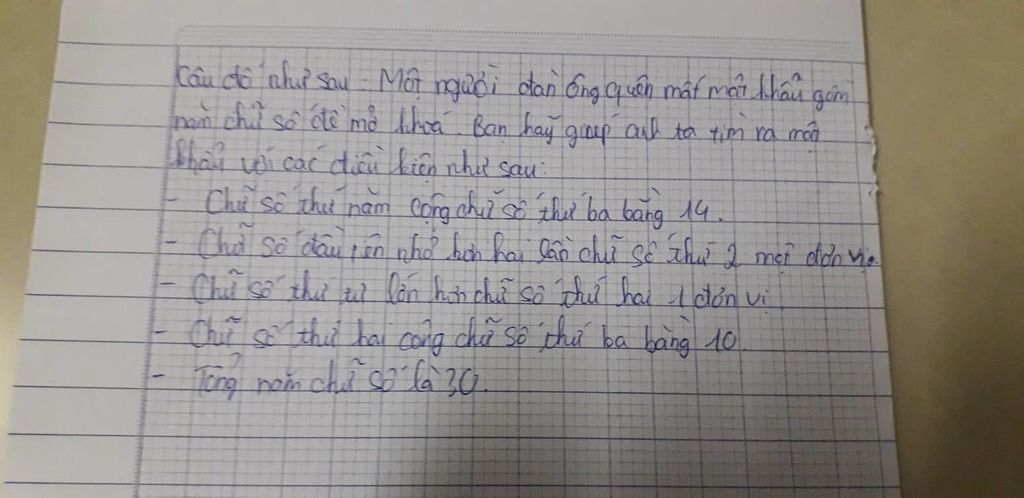 Câu đố như sau. Một người đàn ông quên mất mật khẩu gồm
năm chữ số để mở khoá. Bạn hãy giúp anh ta tìm ra mật
khẩu với các điều kiện như sau:
- Chữ số thứ năm cộng chữ số thứ ba bằng 14.
- Chữ số đầu tiên nhỏ hơn hai lần chữ số thứ 2 một đơn vị.
- Chữ số thứ tư lớn hơn chữ số thứ hai 1 đơn vị
- Chữ số thứ hai cộng chữ số thứ ba bằng 10.
- Tổng năm chữ số là 30.